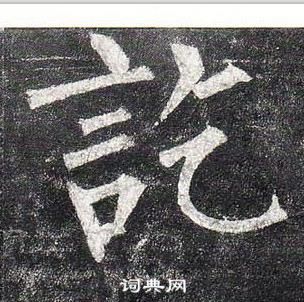 訖
词典网